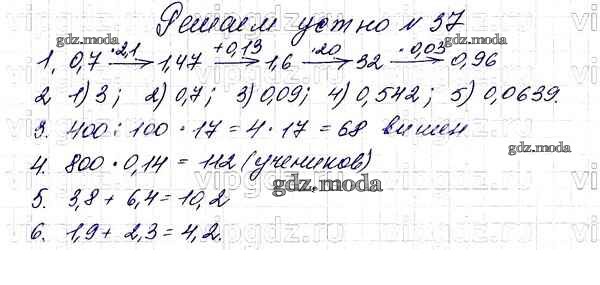 Решаем устно № 37
1. 0,7 —·2,1→ 1,47 —+0,13→ 1,6 —·20→ 32 —·0,03→ 0,96
2 1) 3; 2) 0,7; 3) 0,09; 4) 0,542; 5) 0,0639.
3. 400 : 100 · 17 = 4 · 17 = 68 вишен
4. 800 · 0,14 = 112 (учеников)
5. 3,8 + 6,4 = 10,2
6. 1,9 + 2,3 = 4,2.
gdz.moda
gdz.moda
gdz.moda
gdz.moda
vipgdz.ru